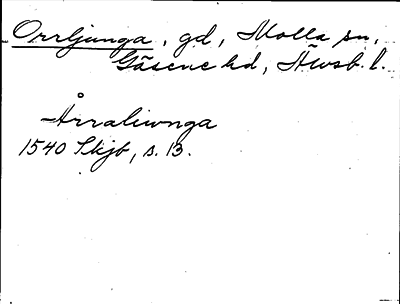 Orrljunga, gd, Molla sn,
Gäsene hd, Älvsb. l.
Årraliwnga
1540 Skjb, s. 13.